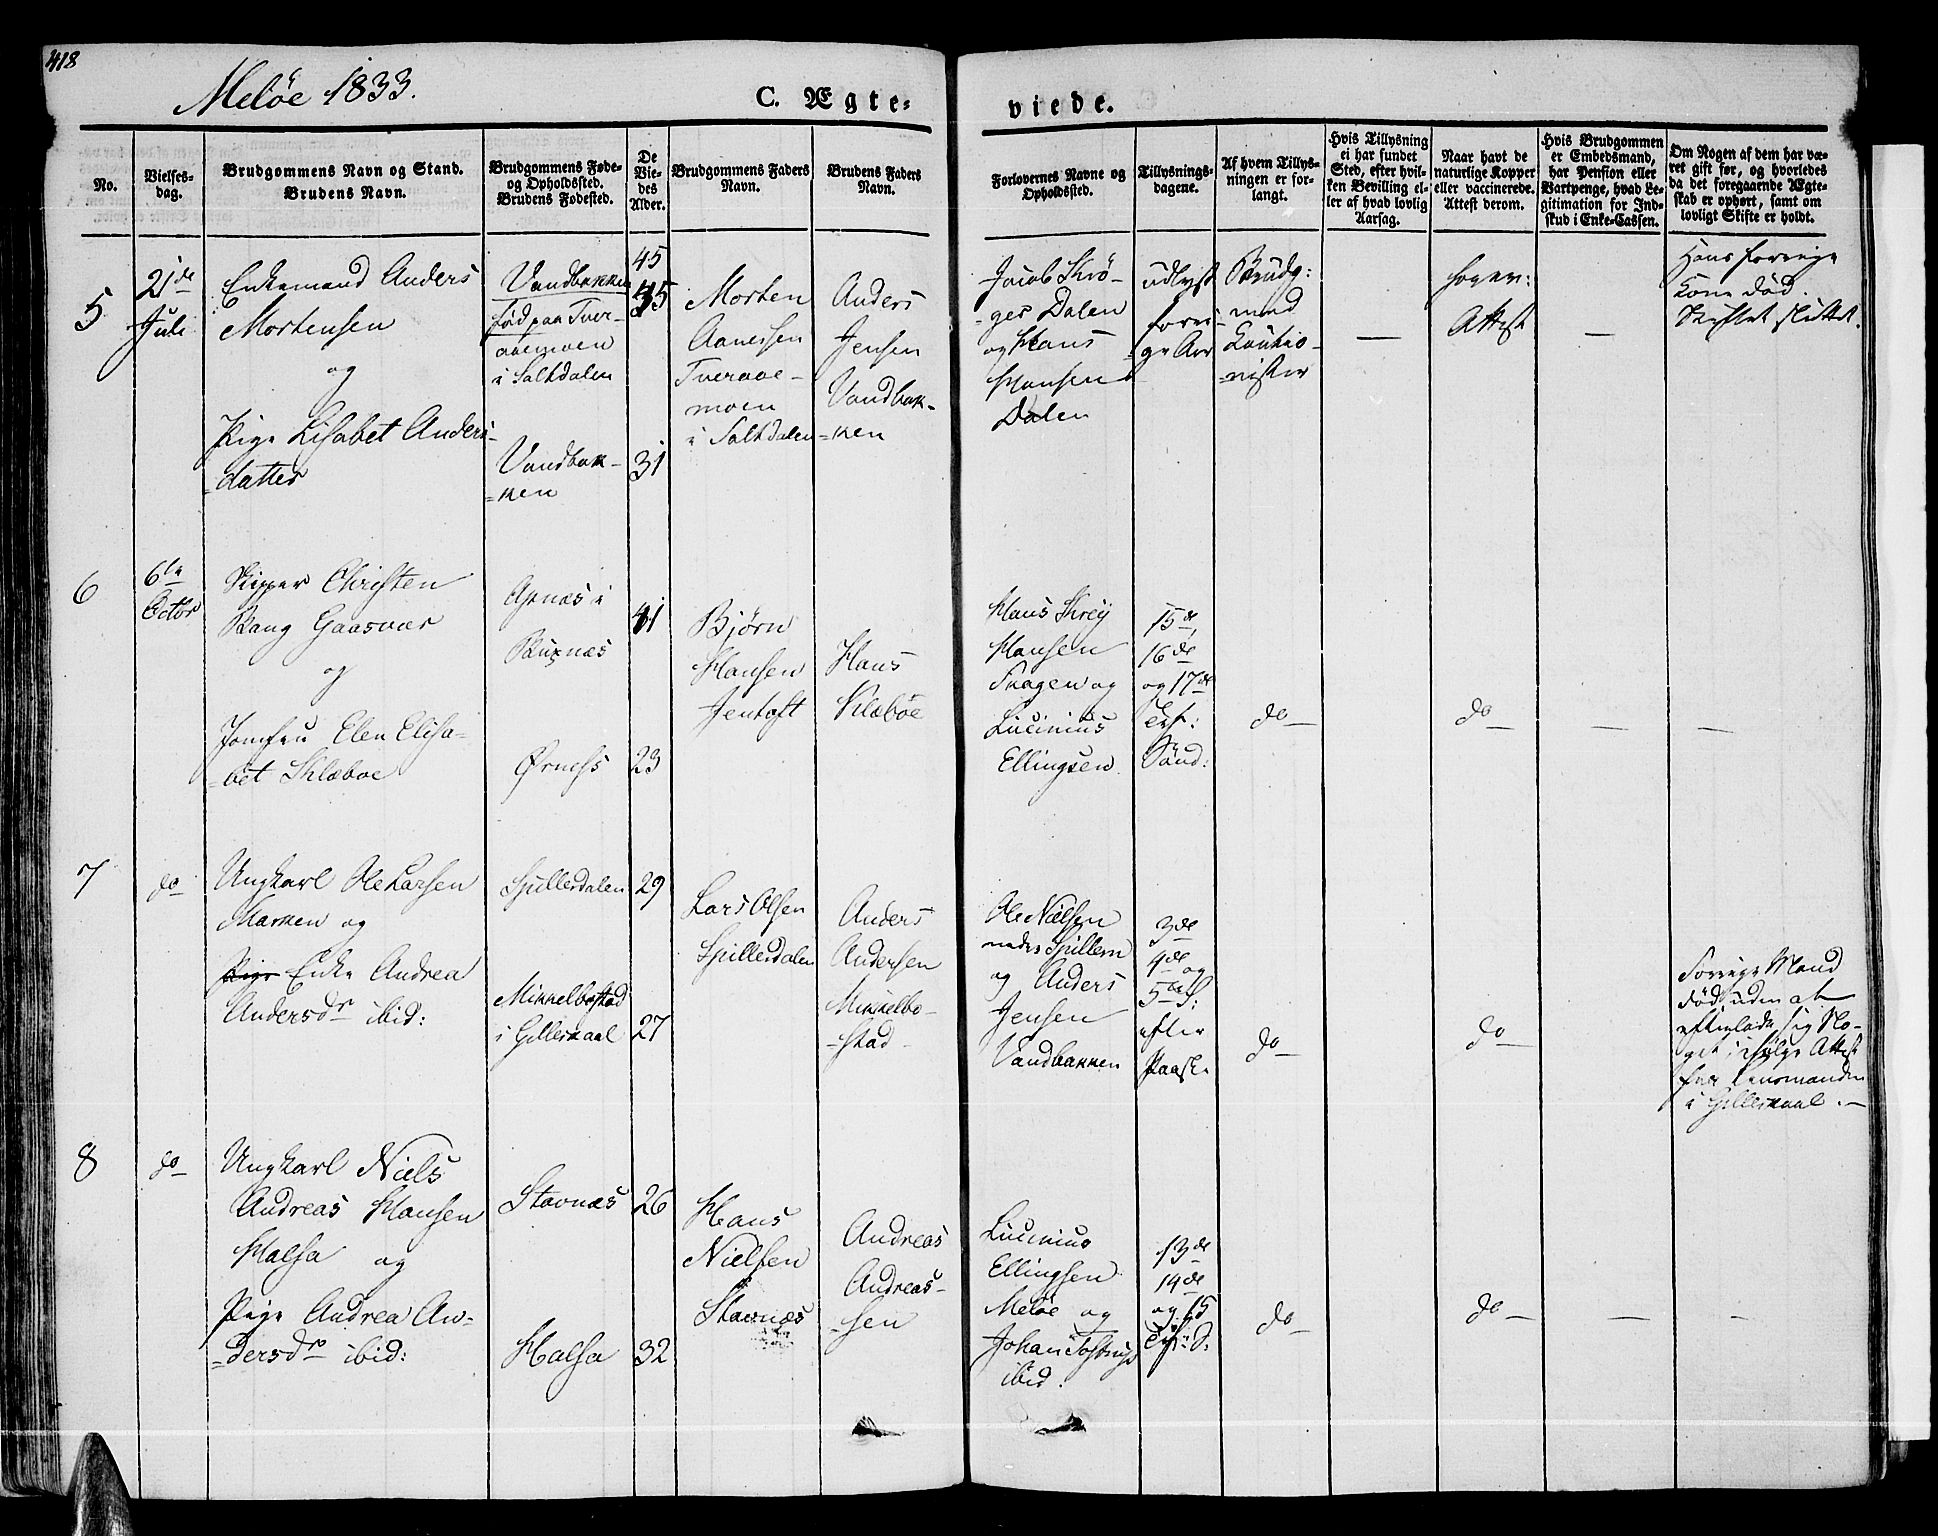 418
Meløe 1833.
C. Ægte-
viede.
No.
Vielses-
dag.
Brudgommens Navn og Stand.
Brudens Navn.
Brudgommens Føde-
og Opholdssted.
Brudens Fødested.
De
Vie-
des
Alder.
Brudgommens Faders
Navn.
Brudens Faders
Navn.
Forlovernes Navne og
Opholdssted.
Tillysnings-
dagene.
Af hvem Tillys-
ningen er for-
langt.
Hvis Tillysning
ei har fundet
Sted, efter hvil-
ken Bevilling el-
ler af hvad lovlig
Aarsag.
Naar havt de
naturlige Kopper
eller vaccinerede.
Attest derom.
Hvis Brudgommen
er Embedsmand,
har Pension eller
Vartpenge, hvad Le-
gitimation for Ind-
skud i Enke-Cassen.
Om Nogen af dem har væ-
ret gift før, og hvorledes
da det foregaaende Ægte-
skab er ophørt, samt om
lovligt Skifte er holdt.
5
21de
Juli
Enkemand Anders
Mortensen
og
Pige Lisabet Anders-
=datter
Vandbakken
fød paa Tver-
aaemoen
i Saltdalen
Vandbak-
=ken
45
45
31
Morten
Aanessen
Tveraae-
moen
i Saltdalen
Anders
Jensen
Vandbak-
=ken
Jacob Skrö-
=ges Dalen
og Hans
Hansen
Dalen
udlyst
forri-
ge Aar
Brudg:
med
Cautio-
=nister
—
Attest
—
Hans forrige
Kone død.
Skiftet sluttet.
6
6te
Octbr
Skipper Christen
Bang Gaasvær
og
Jomfru Elen Elisa-
=bet Sklæboe
Agnæs i
Buxnæs
Ørness
41
23
Bjørn
Hansen
Jentoft
Hans
Klæbøe
Hans Skrey
Hansen
Skagen og
Lucinius
Ellingsen
15de,
16de
og 17de
Eft:
Sönd:
do
do
—
—
7
do
Ungkarl Ole Larsen
Marken og
Pige Enke Andrea
Andersdr ibid:
Spillerdalen
Mikkelbostad
i Gilleskaal
29
27
Lars Olsen
Spillerdalen
Anders
Andersen
Mikkelbo-
=stad
Ole Nielsen
nedre Spillern
og Anders
Jensen
Vandbakken
3de
4de og
5te S:
efter
Paaske
do
do
Forrige Mand
død uden at
efterlade sig No-
get, ifølge Attest
fra Lensmanden
i Gilleskaal.—
8
do
Ungkarl Niels
Andreas Hansen
Halsa og
Pige Andrea An-
=dersdr ibid:
Stavnæs
Halsa
26
32
Hans
Nielsen
Stavnæs
Andreas
Andreas-
=sen
Lucinius
Ellingsen
Meløe og
Johan Tostrup
ibid.
13de
14de
og 15
Eft: S:
do
do
—
—